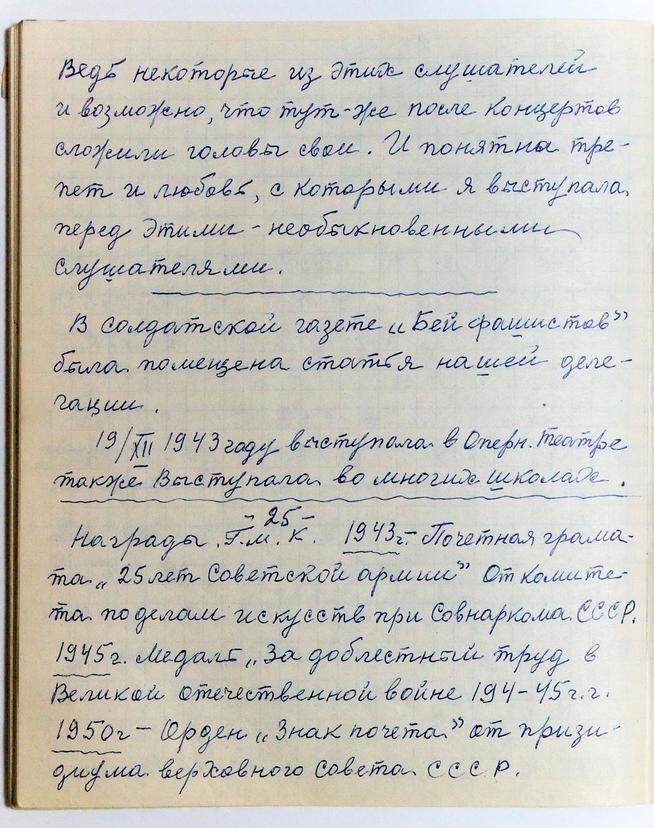 Ведь некоторые из этих слушателей
и возможно, что тут-же после концертов
сложили головы свои. И понятна тре-
пет и любовь, с которыми я выступала
перед этими - необыкновенными
слушателями.
В солдатской газете „Бей фашистов”
была помещена статья нашей деле-
гации.
19/XII 1943 году выступала в Оперн. театре
также Выступала во многих школах.
- 25 -
Награды Г.М.К. 1943г. - Почетная грама-
та „25 лет Советской армии” От комите-
та по делам искусств при Совнаркома СССР.
1945г. Медаль „За доблестный труд в
Великой отечественной войне 194-45г.г.
1950г - Орден „Знак почета” от прези-
диума верховного Совета СССР.